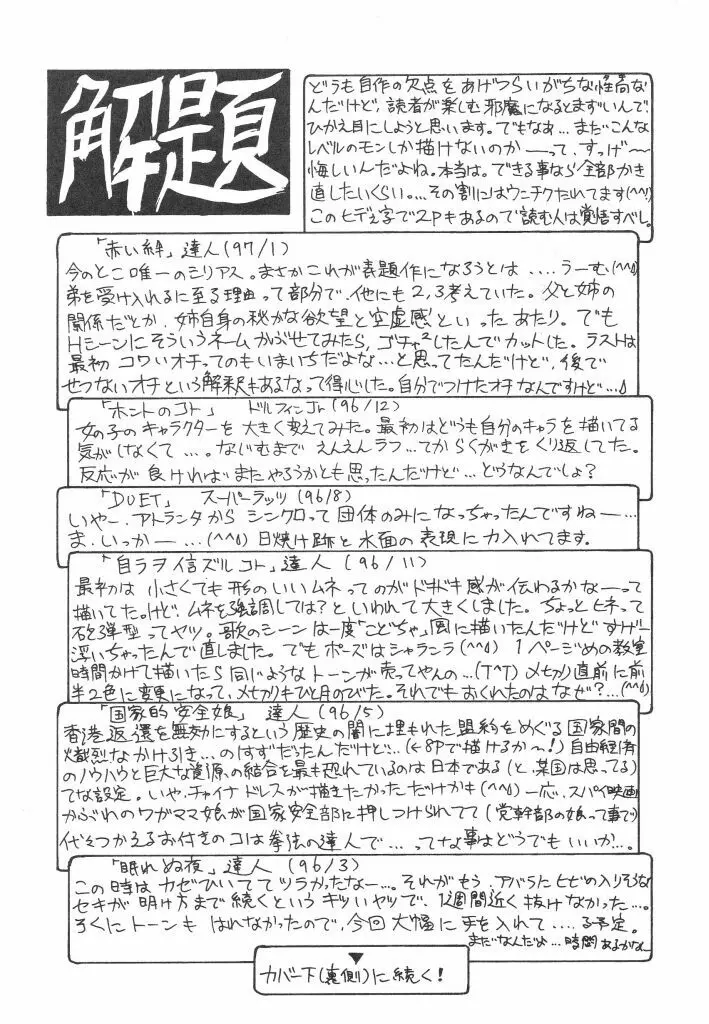 解題
どうも自作の欠点をあげつらいがちな性向な
んだけど、読者が楽しむ邪魔になるとまずいんで
ひかえ目にしようと思います。でもなあ…まだこんな
レベルのモンしか描けないのか──って、すっげ〜
悔しいんだよね。本当は。できる事なら全部かき
直したいくらい。…その割にはウンチクたれてます(^^;)
このヒデぇ字で2Pもあるので読む人は覚悟すべし。
「赤い絆」達人(97/1)
今のとこ唯一のシリアス。まさかこれが表題作になろうとは....うーむ(^^;)
弟を受け入れるに至る理由って部分で、他にも2,3考えていた。父と姉の
関係だとか、姉自身の秘かな欲望と空虚感といったあたり。でも
Hシーンにそういうネームかぶせてみたら、ゴチャ²したんでカットした。ラストは
最初コワいオチってのもいまいちだよな…と思ってたんだけど、後で
せつないオチという解釈もあるなって得心した。自分でつけたオチなんですけど…
「ホントのコト」 ドルフィンJr(96/12)
女の子のキャラクターを大きく変えてみた。最初はどうも自分のキャラを描いてる
気がしなくて…。なじむまでえんえんラフ…てからくがきをくり返してた。
反応が良ければまたやろうかとも思ったんだけど…どうなんでしょ？
「DUET」 スーパーラッツ(96/8)
いやー、アトランタからシンクロって団体のみになっちゃったんですねー…
ま、いっかー…(^^;) 日焼け跡と水面の表現に力入れてます。
「自ラヲ信ズルコト」達人(96/11)
最初は小さくても形のいいムネってのがドキドキ感が伝わるかなーって
描いてた。けど、ムネを強調しては？といわれて大きくしました。ちょっとヒネって
砲弾型ってヤツ。歌のシーンは一度「こどちゃ」風に描いたんだけどすげー
浮いちゃったんで直しました。でもポーズはシャラニラ(^^;) 1ページめの教室
時間かけて描いたら同じようなトーンが売ってやんの…(T^T) メ切り直前に前
半2色に変更になって、メ切りもひと月のびた。それでもおくれたのはなぜ？…(^^;)
「国家的安全娘」達人(96/5)
香港返還を無効にするという歴史の闇に埋もれた盟約をめぐる国家間の
熾烈なかけ引き…のはずだったんだけど…(←8Pで描けるか〜！)自由経済
のノウハウと巨大な資源の結合を最も恐れているのは日本である(と、某国は思ってる)
てな設定。いや、チャイナドレスが描きたかっただけかも(^^;) 一応、スパイ映画
かぶれのワガママ娘が国家安全部に押しつけられてて(党幹部の娘って事で)
代々つかえるお付きのコは拳法の達人で…ってな事はどうでもいいか…。
「眠れぬ夜」達人(96/3)
この時はカゼひいててツラかったなー…。それがもう、アバラにヒビの入りそうな
セキが明け方まで続くというキツいヤツで、1週間近く抜けなかった…。
ろくにトーンもはれなかったので、今回大幅に手を入れて....る予定。
まだなんだよ…時間あるかなー
▼
カバー下(裏側)に続く！